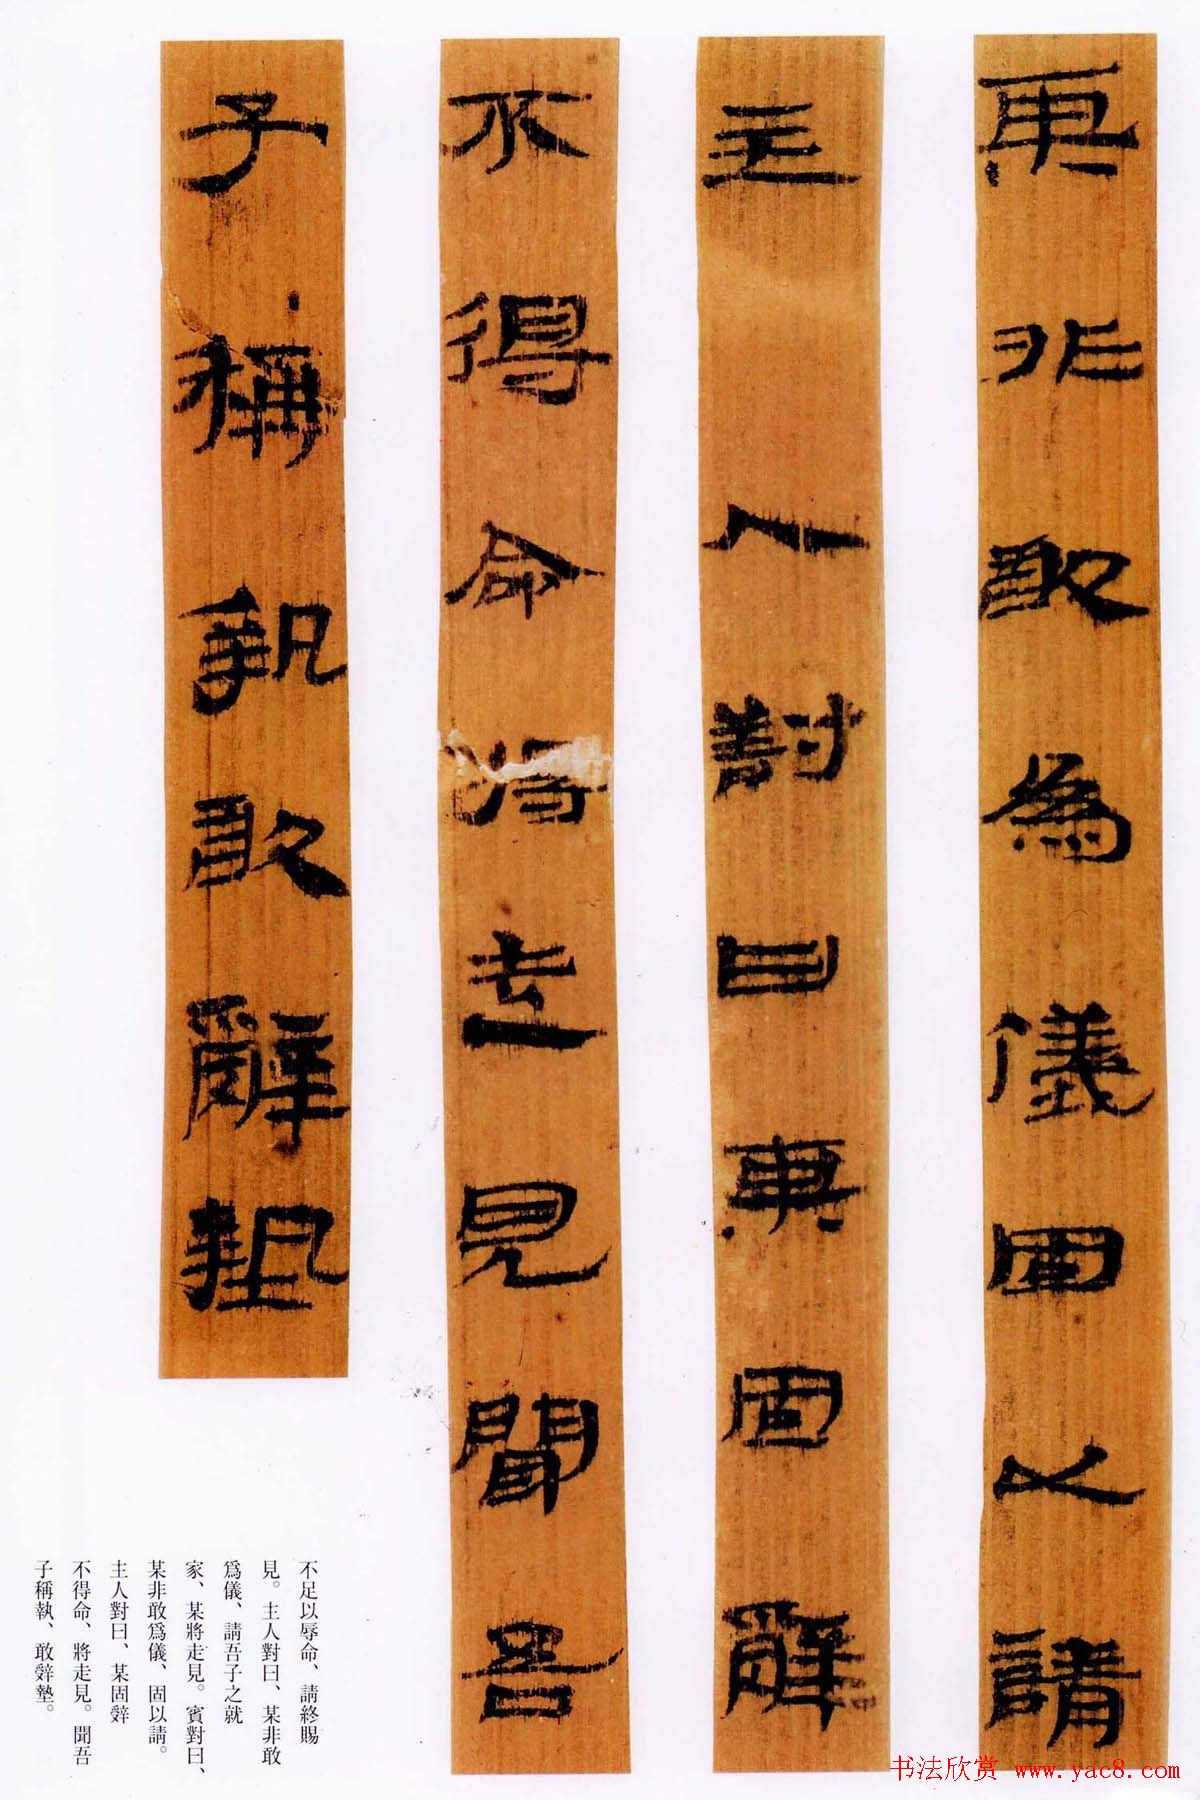 某非敢為儀固以請
主人對曰某固辭
不得命將走見聞吾
子稱執敢辭執
不足以辱命、請終賜
見。主人對曰、某非敢
爲儀、請吾子之就
家、某將走見。賓對曰、
某非敢爲儀、固以請。
主人對曰、某固辤
不得命、將走見。聞吾
子稱執、敢辤摯。
书法欣赏 www.yac8.com